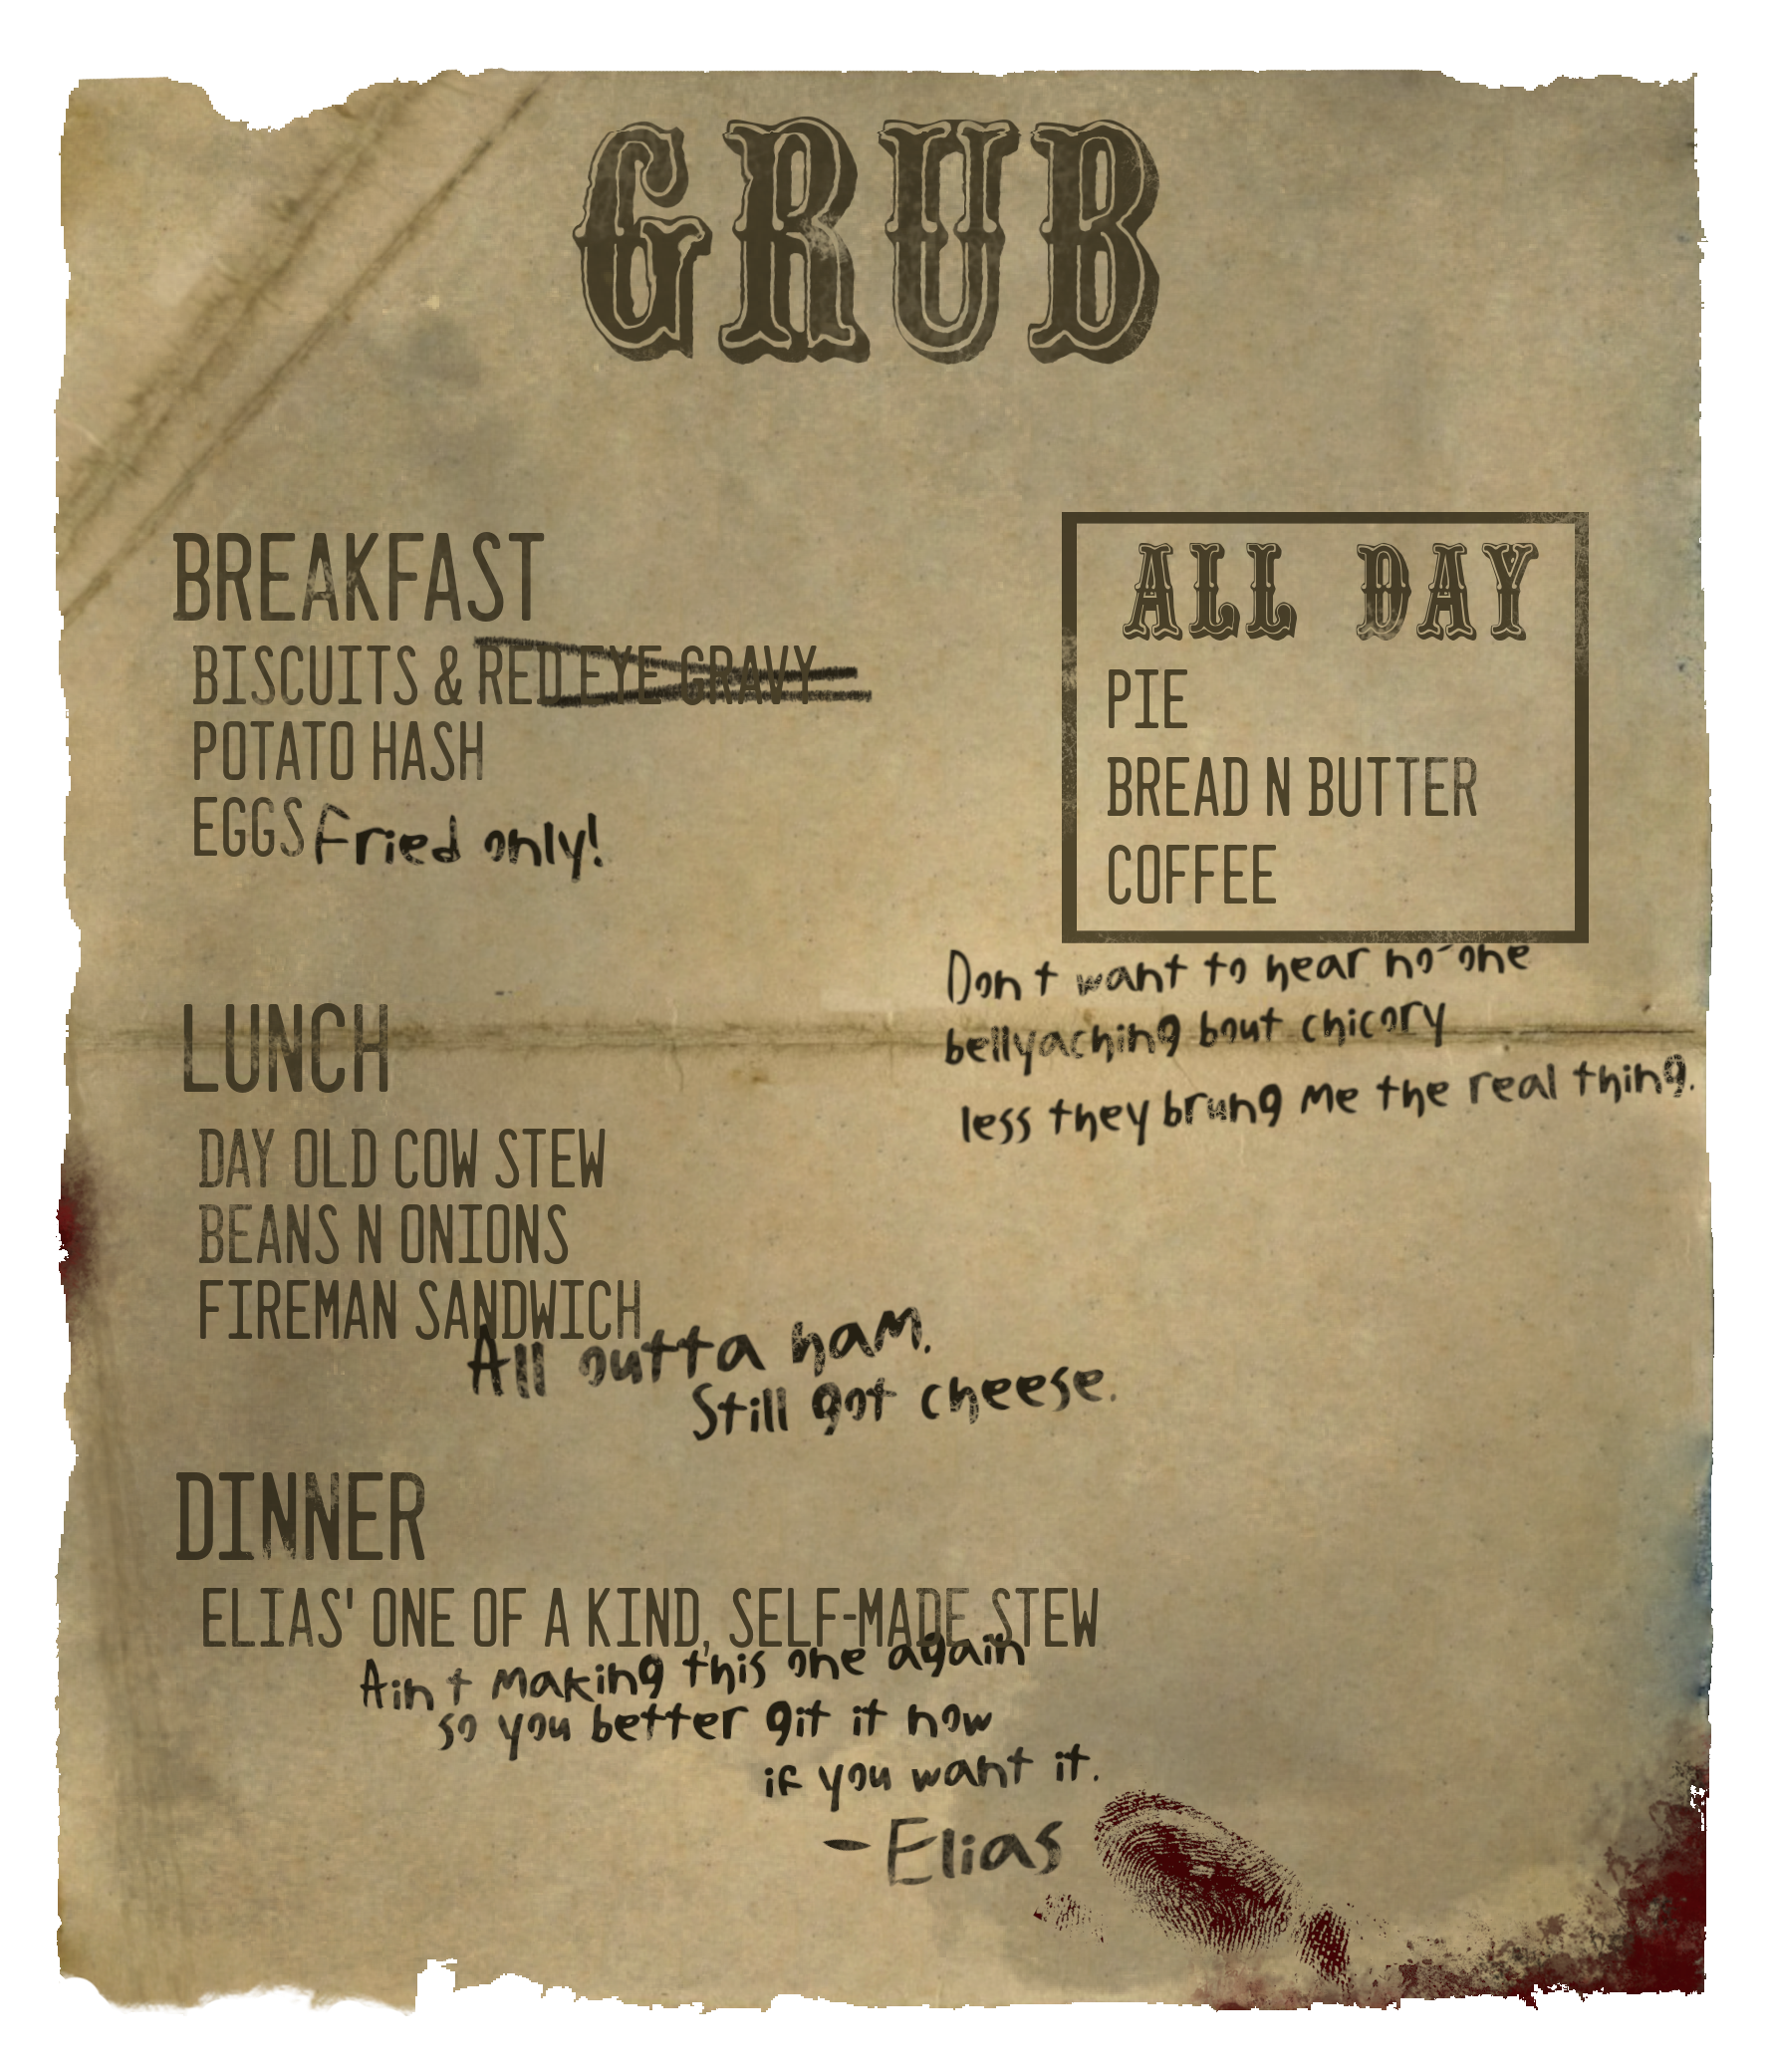 GRUB
BREAKFAST
BISCUITS & RED EYE GRAVY
POTATO HASH
EGGS Fried only!
ALL DAY
PIE
BREAD N BUTTER
COFFEE
Don't want to hear no-one
bellyaching bout chicory
less they brung me the real thing.
LUNCH
DAY OLD COW STEW
BEANS N ONIONS
FIREMAN SANDWICH
All outta ham.
Still got cheese.
DINNER
ELIAS' ONE OF A KIND, SELF-MADE STEW
Ain't making this one again
so you better git it now
if you want it.
- Elias